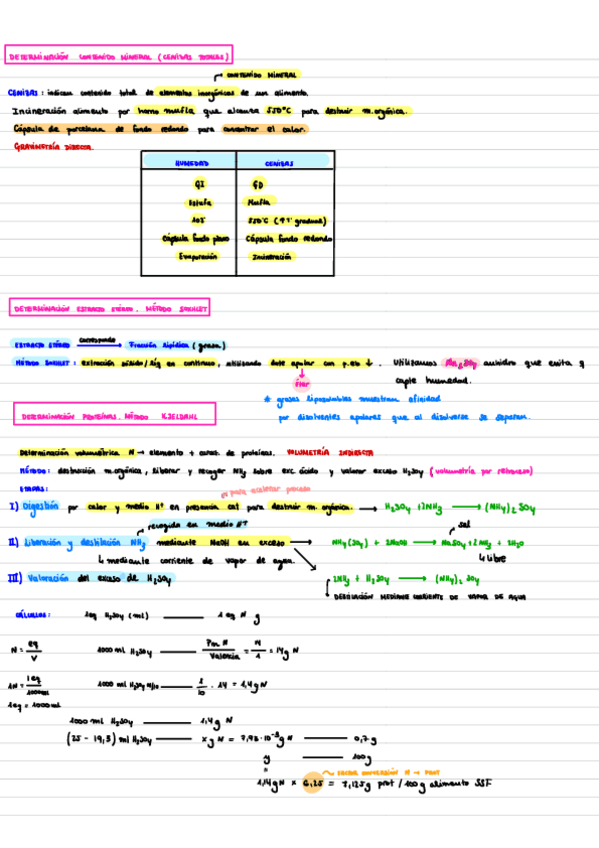 DETERMINACIÓN CONTENIDO MINERAL (CENIZAS TOTALES)
CONTENIDO MINERAL
CENIZAS: indican contenido total de elementos inorgánicos de un alimento.
Incineración alimento por horno mufla que alcanza 550ºC para destruir m.orgánica.
Cápsula de porcelana de fondo redondo para concentrar el calor.
GRAVIMETRÍA DIRECTA
HUMEDAD CENIZAS
GI GD
Estufa Mufla
105 550ºC (↑Tº gradual)
Cápsula fondo plano Cápsula fondo redondo
Evaporación Incineración
DETERMINACIÓN EXTRACTO ETÉREO. MÉTODO SOXHLET
EXTRACTO ETÉREO corresponde → Fracción lipídica (grasa)
MÉTODO SOXHLET: extracción sólido/líq en continuo, utilizando dste apolar con p.eb ↓. Utilizamos anhidro que evita q
capte humedad.
éter
* grasas liposolubles muestran afinidad
por disolventes apolares que al disolverse se separan.
DETERMINACIÓN PROTEÍNAS. MÉTODO KJELDAHL
Determinación volumétrica N → elemento + caract. de proteínas. VOLUMETRÍA INDIRECTA
MÉTODO: destrucción m.orgánica, liberar y recoger NH3 sobre exc. ácido y valorar exceso H2SO4 (volumetría por retroceso)
ETAPAS:
para acelerar proceso
I) Digestión por calor y medio H+ en presencia cat para destruir m. orgánica. → H2SO4 + 2NH3 → (NH4)2 SO4
recogida en medio H+
sal
II) Liberación y destilación NH3 mediante NaOH en exceso → NH4(SO4) + 2NaOH → NaSO4 + 2NH3 + 2H2O
↳ mediante corriente de vapor de agua.
↳ libre
III) Valoración del exceso de H2SO4
2NH3 + H2SO4 → (NH4)2 SO4
DESTILACIÓN MEDIANTE CORRIENTE DE VAPOR DE AGUA
CÁLCULOS: 1eq H2SO4 (ml) — 1 eq N g
N = eq/V 1000 ml H2SO4 — Pm N/Valencia = 14/1 = 14g N
1N = 1eq/1000ml 1000 ml H2SO4 N/10 — 1/10 · 14 = 1,4g N
1eq = 1000ml
1000 ml H2SO4 — 1,4g N
(25 - 19,3) ml H2SO4 — x g N = 7,98·10-3g N — 0,7g
y — 100g
FACTOR CONVERSIÓN N → PROT
1,14g N × 6,25 = 7,125g prot / 100g alimento SSF